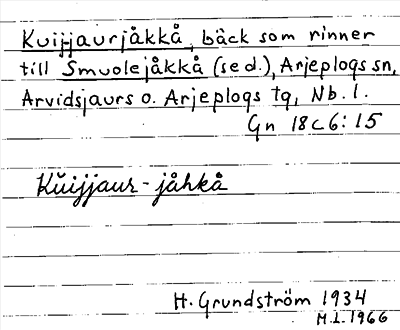 Kuijjaurjåkkå, bäck som rinner
till Smuolejåkkå (se d.), Arjeplogs sn,
Arvidsjaurs o. Arjeplogs tg, Nb. l.
Gn 18c6:15
Kŭijjaur-jåhkå
H. Grundström 1934
M.L. 1966